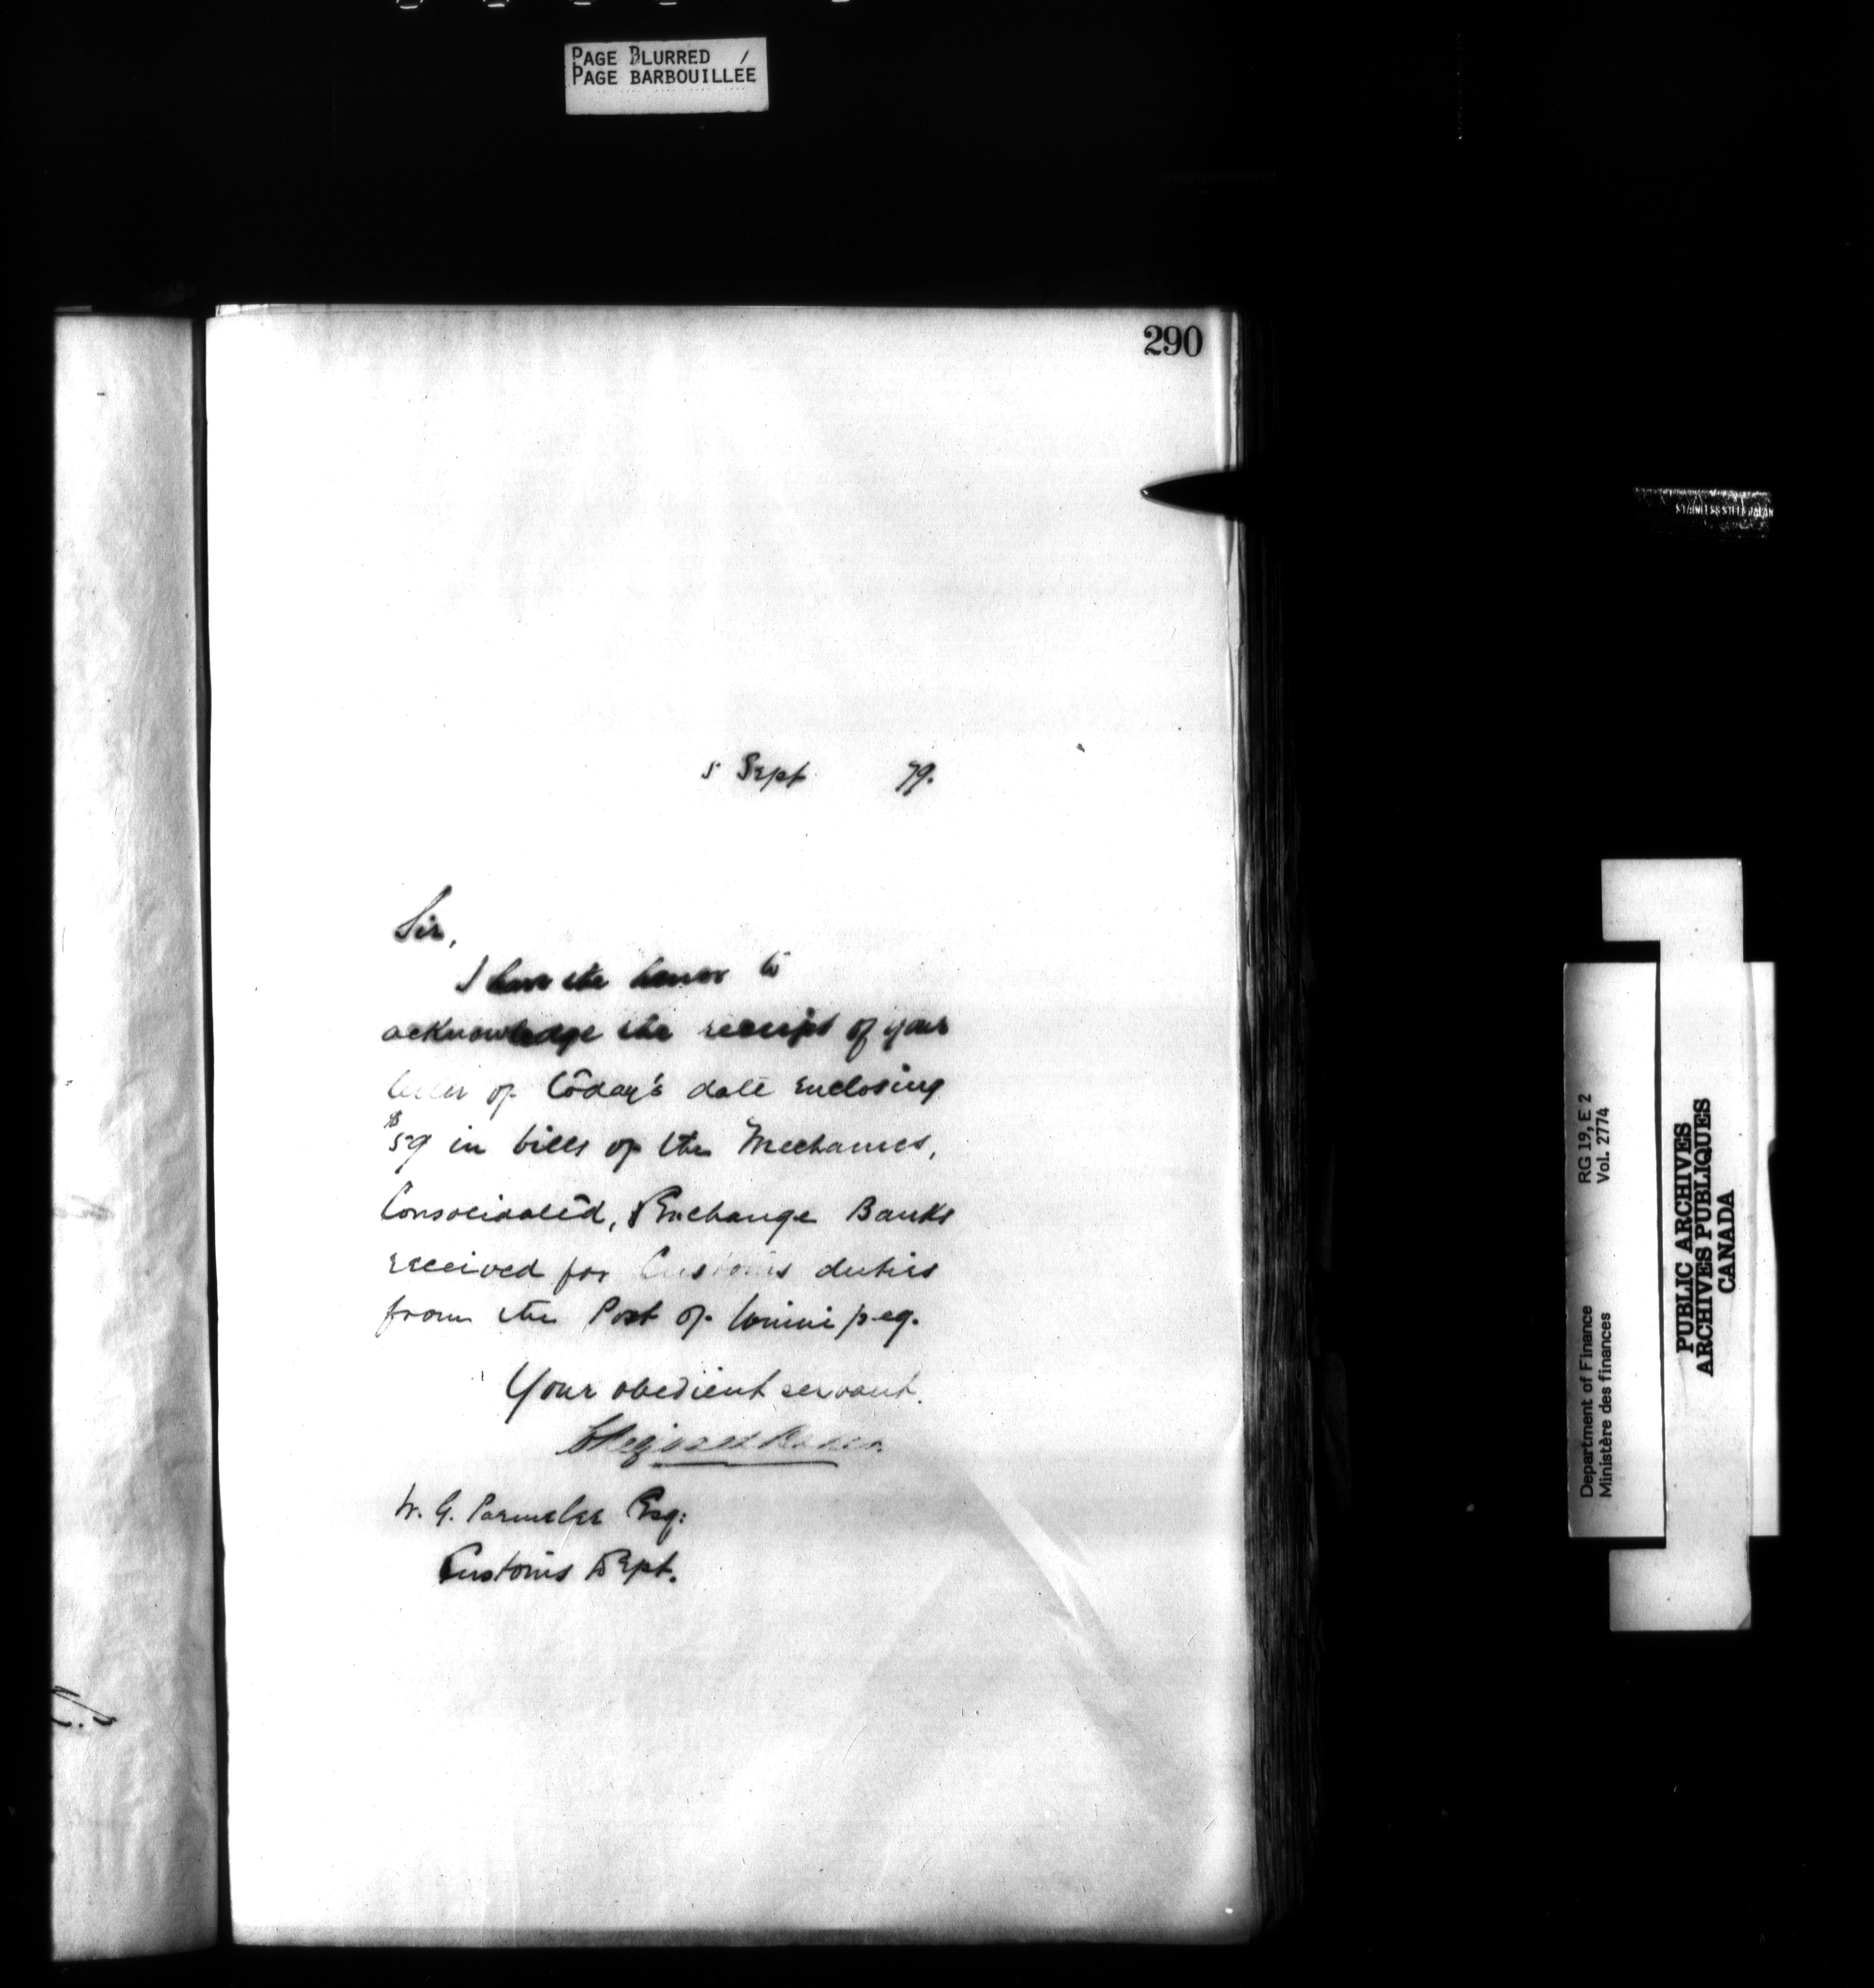 PAGE BLURRED /
PAGE BARBOUILLÉE
290
5 Sept 79.
Sir,
I have the honor to
acknowledge the receipt of your
letter of today's date enclosing
$59 in bills of the Mechanics,
Consolidated, & Exchange Banks
received for Customs duties
from the Port of Winnipeg.
Your obedient servant.
W. G. Parmelee Esq:
Customs Dept.
STAINLESS STEEL JAPAN
Department of Finance RG 19, E 2
Ministère des finances Vol. 2774
PUBLIC ARCHIVES
ARCHIVES PUBLIQUES
CANADA